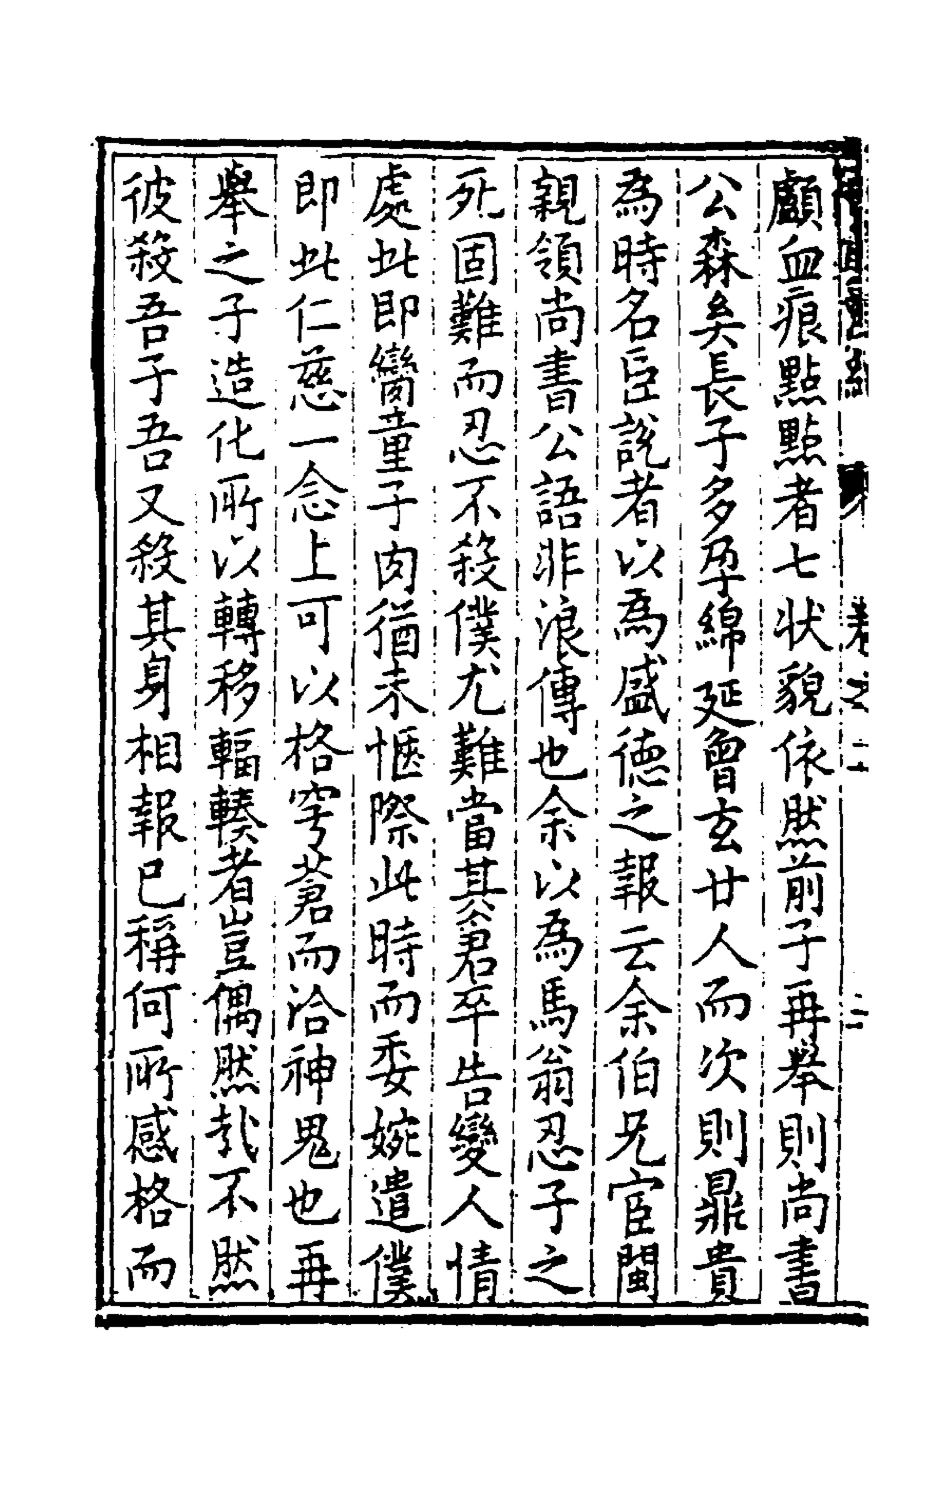 顱血痕點點者七狀貌依然前子再舉則尚書
公森矣長子多孕綿延曾玄廿人而次則鼎貴
為時名臣說者以為盛德之報云余伯兄宦閩
親領尚書公語非浪傳也余以為馬翁忍子之
死固難而忍不殺僕尤難當其倉卒告變人情
處此即臠童子肉猶未愜際此時而委婉遣僕
即此仁慈一念上可以格穹蒼而洽神鬼也再
舉之子造化所以轉移輻輳者豈偶然哉不然
彼殺吾子吾又殺其身相報已稱何所感格而
卷之二
二